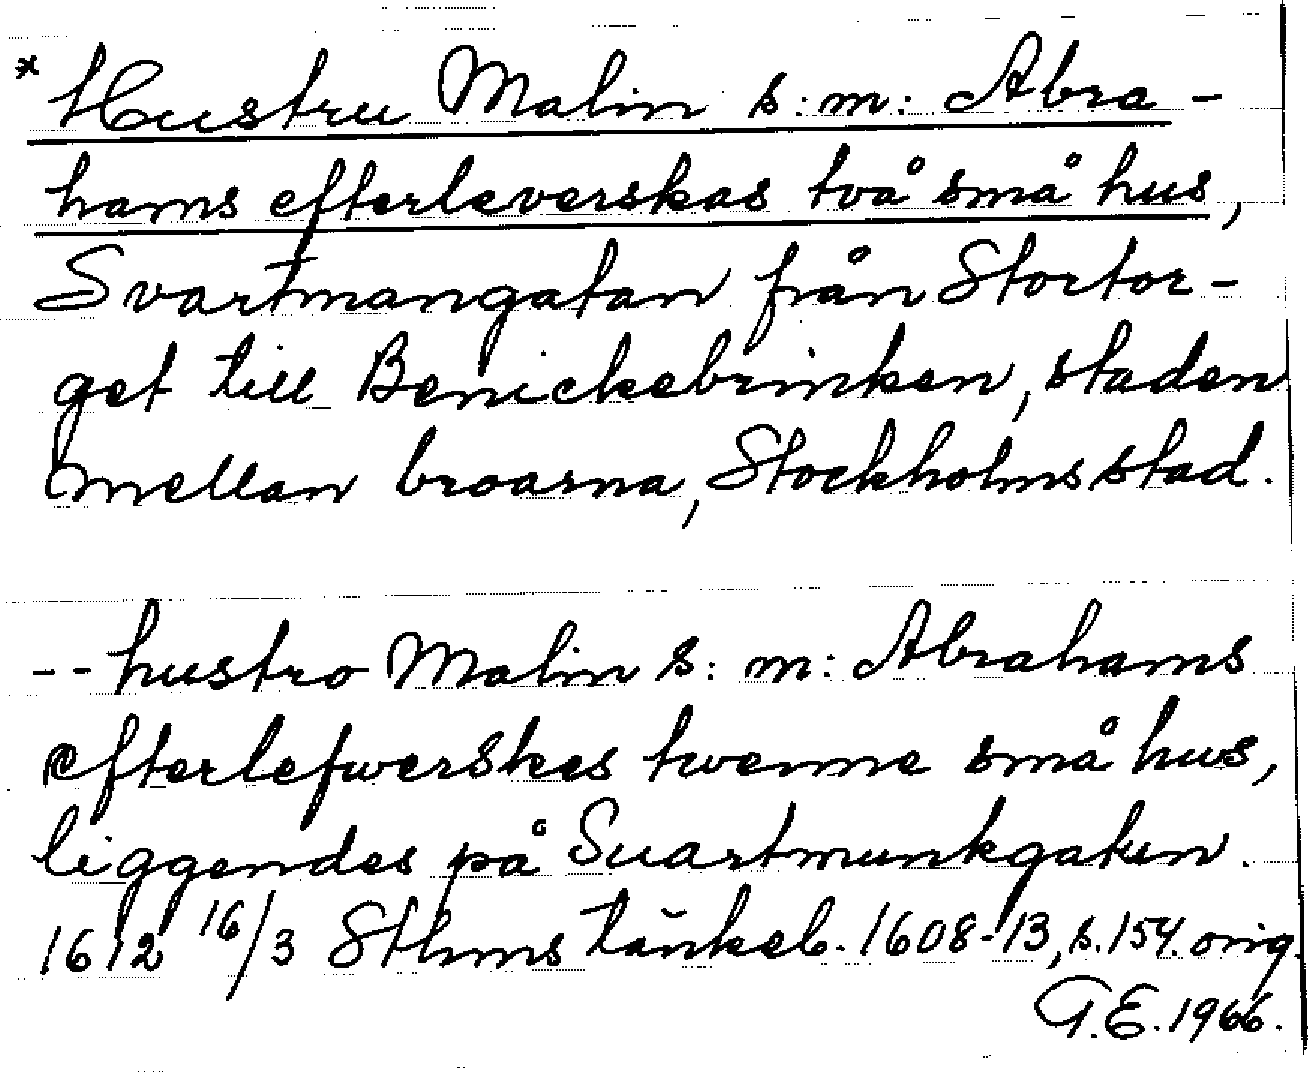 * Hustru Malin s:m: Abra-
hams efterleverskas två små hus,
Svartmangatan från Stortor-
get till Benickebrinken, staden
mellan broarna, Stockholms stad.
-- hustro Malin s:m: Abrahams
efterlefwerskes twenne små hus,
liggendes på Suartmunkgatun.
1612 16/3 Sthms tänkeb. 1608-13, s. 154. orig.
G.E. 1966.